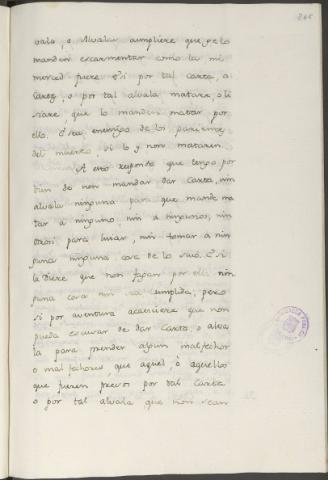 vala, o Alvala cumpliere que yo lo
mandare escarmentar como la mi
merced fuere. E si por tal carta, a
Carta, o por tal alvala matare, o li
siare, que lo manden matar por
ello. E sea enemigo de los parientes
del muerto si lo y non mataren.
A esto respondo que tengo por
bien de non mandar dar Carta, nin
alvala ninguna para que mande ma
tar a ninguno, nin a ningunos, nin
otrosi para lisiar, nin tomar a nin
guno ninguna cosa de lo suyo. E si
la diere que non fagan por ella nin
guna cosa nin sea cumplida, pero
si por aventura acaesciere que non
pueda escusar de dar Carta, o alva
la para prender algun malfechor
o malfechores, que aquel, o aquellos
que fueren presos por tal Carta
o por tal alvala que non sean